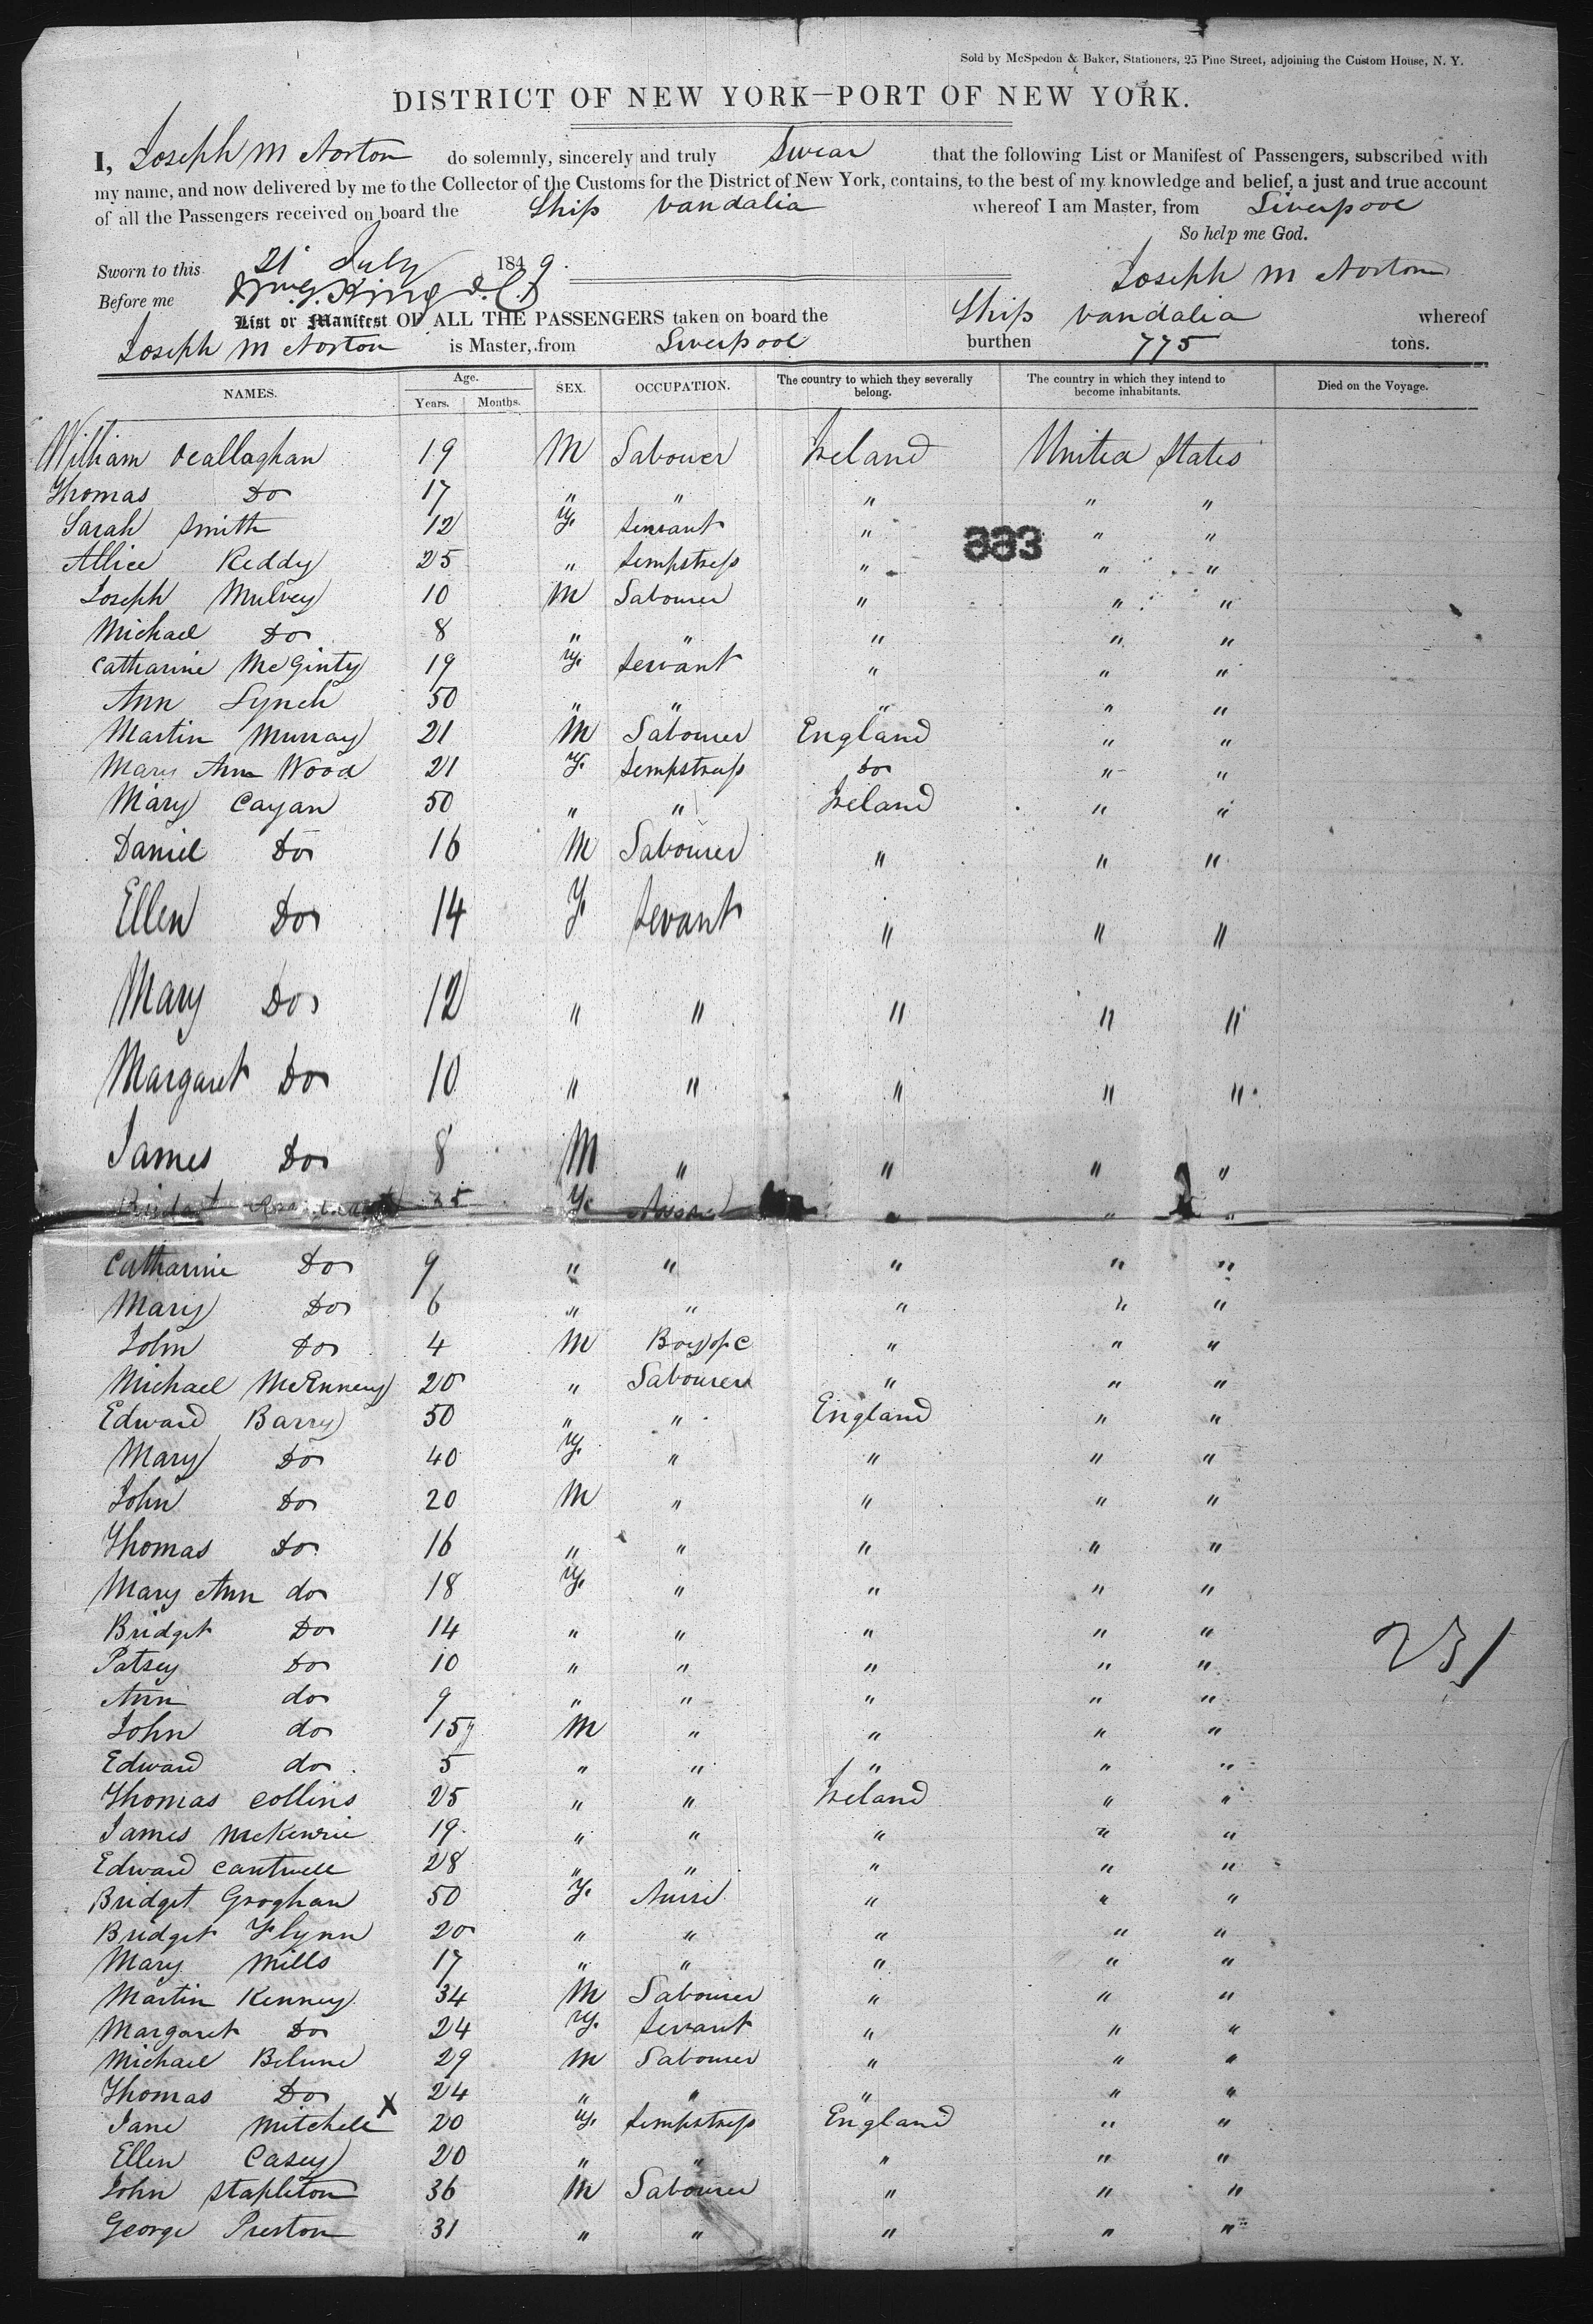 Sold by McSpedon & Baker, Stationers, 25 Pine Street, adjoining the Custom House, N. Y.
DISTRICT OF NEW YORK—PORT OF NEW YORK.
I, Joseph M Norton do solemnly, sincerely and truly Swear that the following List or Manifest of Passengers, subscribed with
my name, and now delivered by me to the Collector of the Customs for the District of New York, contains, to the best of my knowledge and belief, a just and true account
of all the Passengers received on board the Ship Vandalia whereof I am Master, from Liverpool
So help me God.
Sworn to this 21 July 1849.
Joseph M Norton
Before me King
List or Manifest OF ALL THE PASSENGERS taken on board the Ship Vandalia whereof
Joseph M Norton is Master, from Liverpool burthen 775 tons.
NAMES. Age. Years. Months. SEX. OCCUPATION. The country to which they severally belong. The country in which they intend to become inhabitants. Died on the Voyage.
William Ocallaghan 19 M Labourer Ireland United States
Thomas Do 17 " " " " "
Sarah Smith 12 F. servant " " "
993
Allice Reddy 25 " sempstress " " "
Joseph Mulvey 10 M Labourer " " "
Michael Do 8 " " " " "
Catharine McGinty 19 F. servant " " "
Ann Lynch 50 " " " " "
Martin Murray 21 M Labourer England " "
Mary Ann Wood 21 F. sempstress Do " "
Mary Cayan 50 " " Ireland " "
Daniel Do 16 M Labourer " " "
Ellen Do 14 F. sevant " " "
Mary Do 12 " " " " "
Margaret Do 10 " " " " "
James Do 8 M " " " "
35 F. " " "
Catharine Do 9 " " " " "
Mary Do 6 " " " " "
John Do 4 M Boy " " "
Michael McEnnery 20 " Labourer " " "
Edward Barry 50 " " England " "
Mary Do 40 F. " " " "
John Do 20 M " " " "
Thomas Do 16 " " " " "
Mary Ann do 18 F. " " " "
Bridget Do 14 " " " " "
Patsey Do 10 " " " " "
231
Ann do 9 " " " " "
John do 15 M " " " "
Edward do 5 " " " " "
Thomas Collins 25 " " Ireland " "
James McKenzie 19 " " " " "
Edward Cantwell 28 " " " " "
Bridget Groghan 50 F. Nurse " " "
Bridget Flynn 20 " " " " "
Mary Mills 17 " " " " "
Martin Kenney 34 M Labourer " " "
Margaret Do 24 F. servant " " "
Michael 29 M Labourer " " "
Thomas Do 24 " " " " "
Jane Mitchell X 20 F. sempstress England " "
Ellen Casey 20 " " " " "
John Stapleton 36 M Labourer " " "
George Preston 31 " " " " "